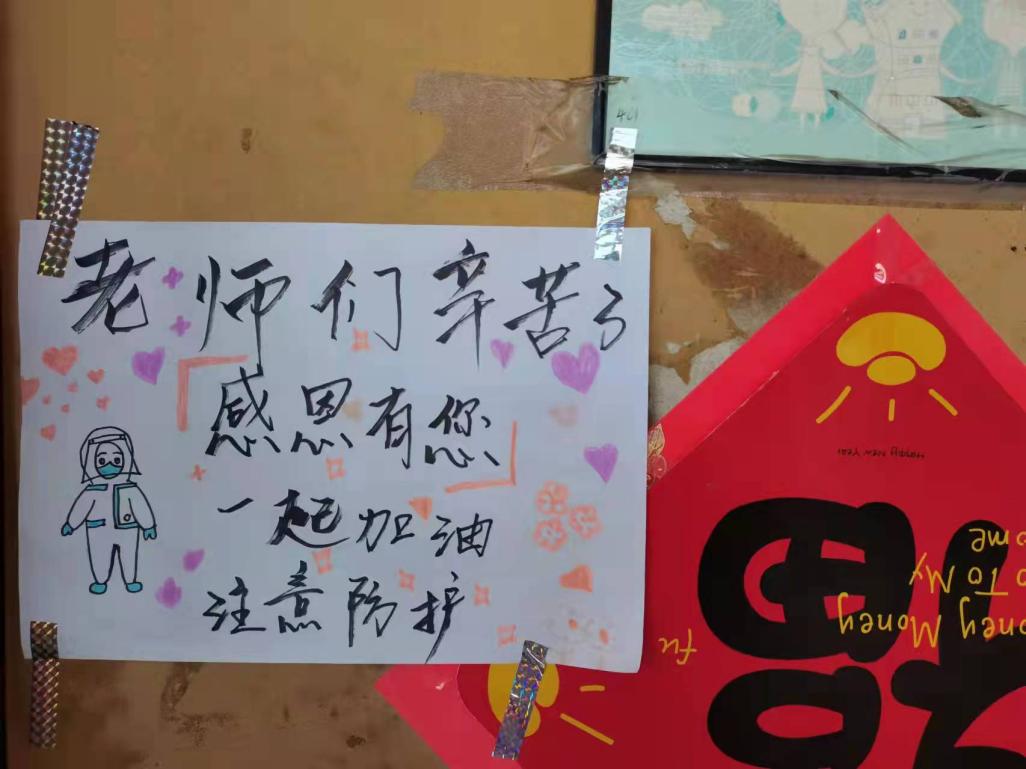 老师们辛苦了
感恩有您
一起加油
注意防护
401
HAPPY NEW YEAR
fu
Money Money
To My
ome